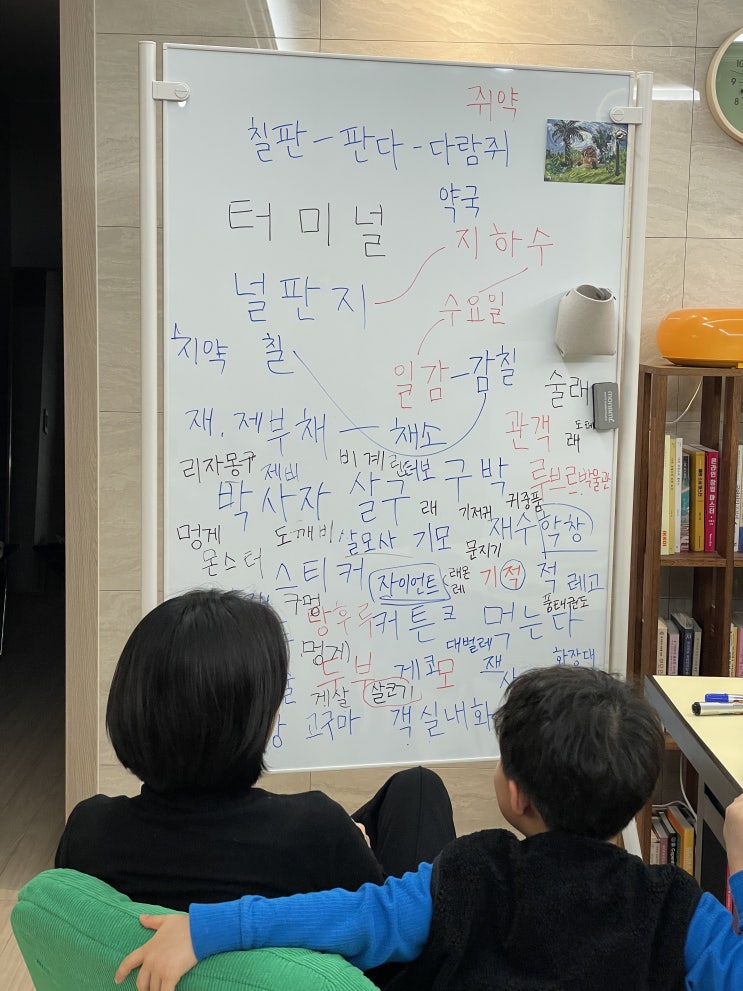 쥐약
칠판 - 판다 - 다람쥐
약국
터미널
지하수
널판지
수요일
치약 칠
일감 - 감칠
술래
재.제부채 - 채소
관객
도레
래
리자몽구 제비 비계
구박 루브르박물관
박사자 살구 래 기저귀 귀중품
멍게 도깨비 살모사 기모 재수학창
몬스터 문지기
스티커 자이언트 래온 기적 적 레고
레
구멍 탕후루 커튼 크 먹는다 풍태권도
멍게 대벌레
두부 게코모 잭 화장대
게살 살코기
고구마 객실내화